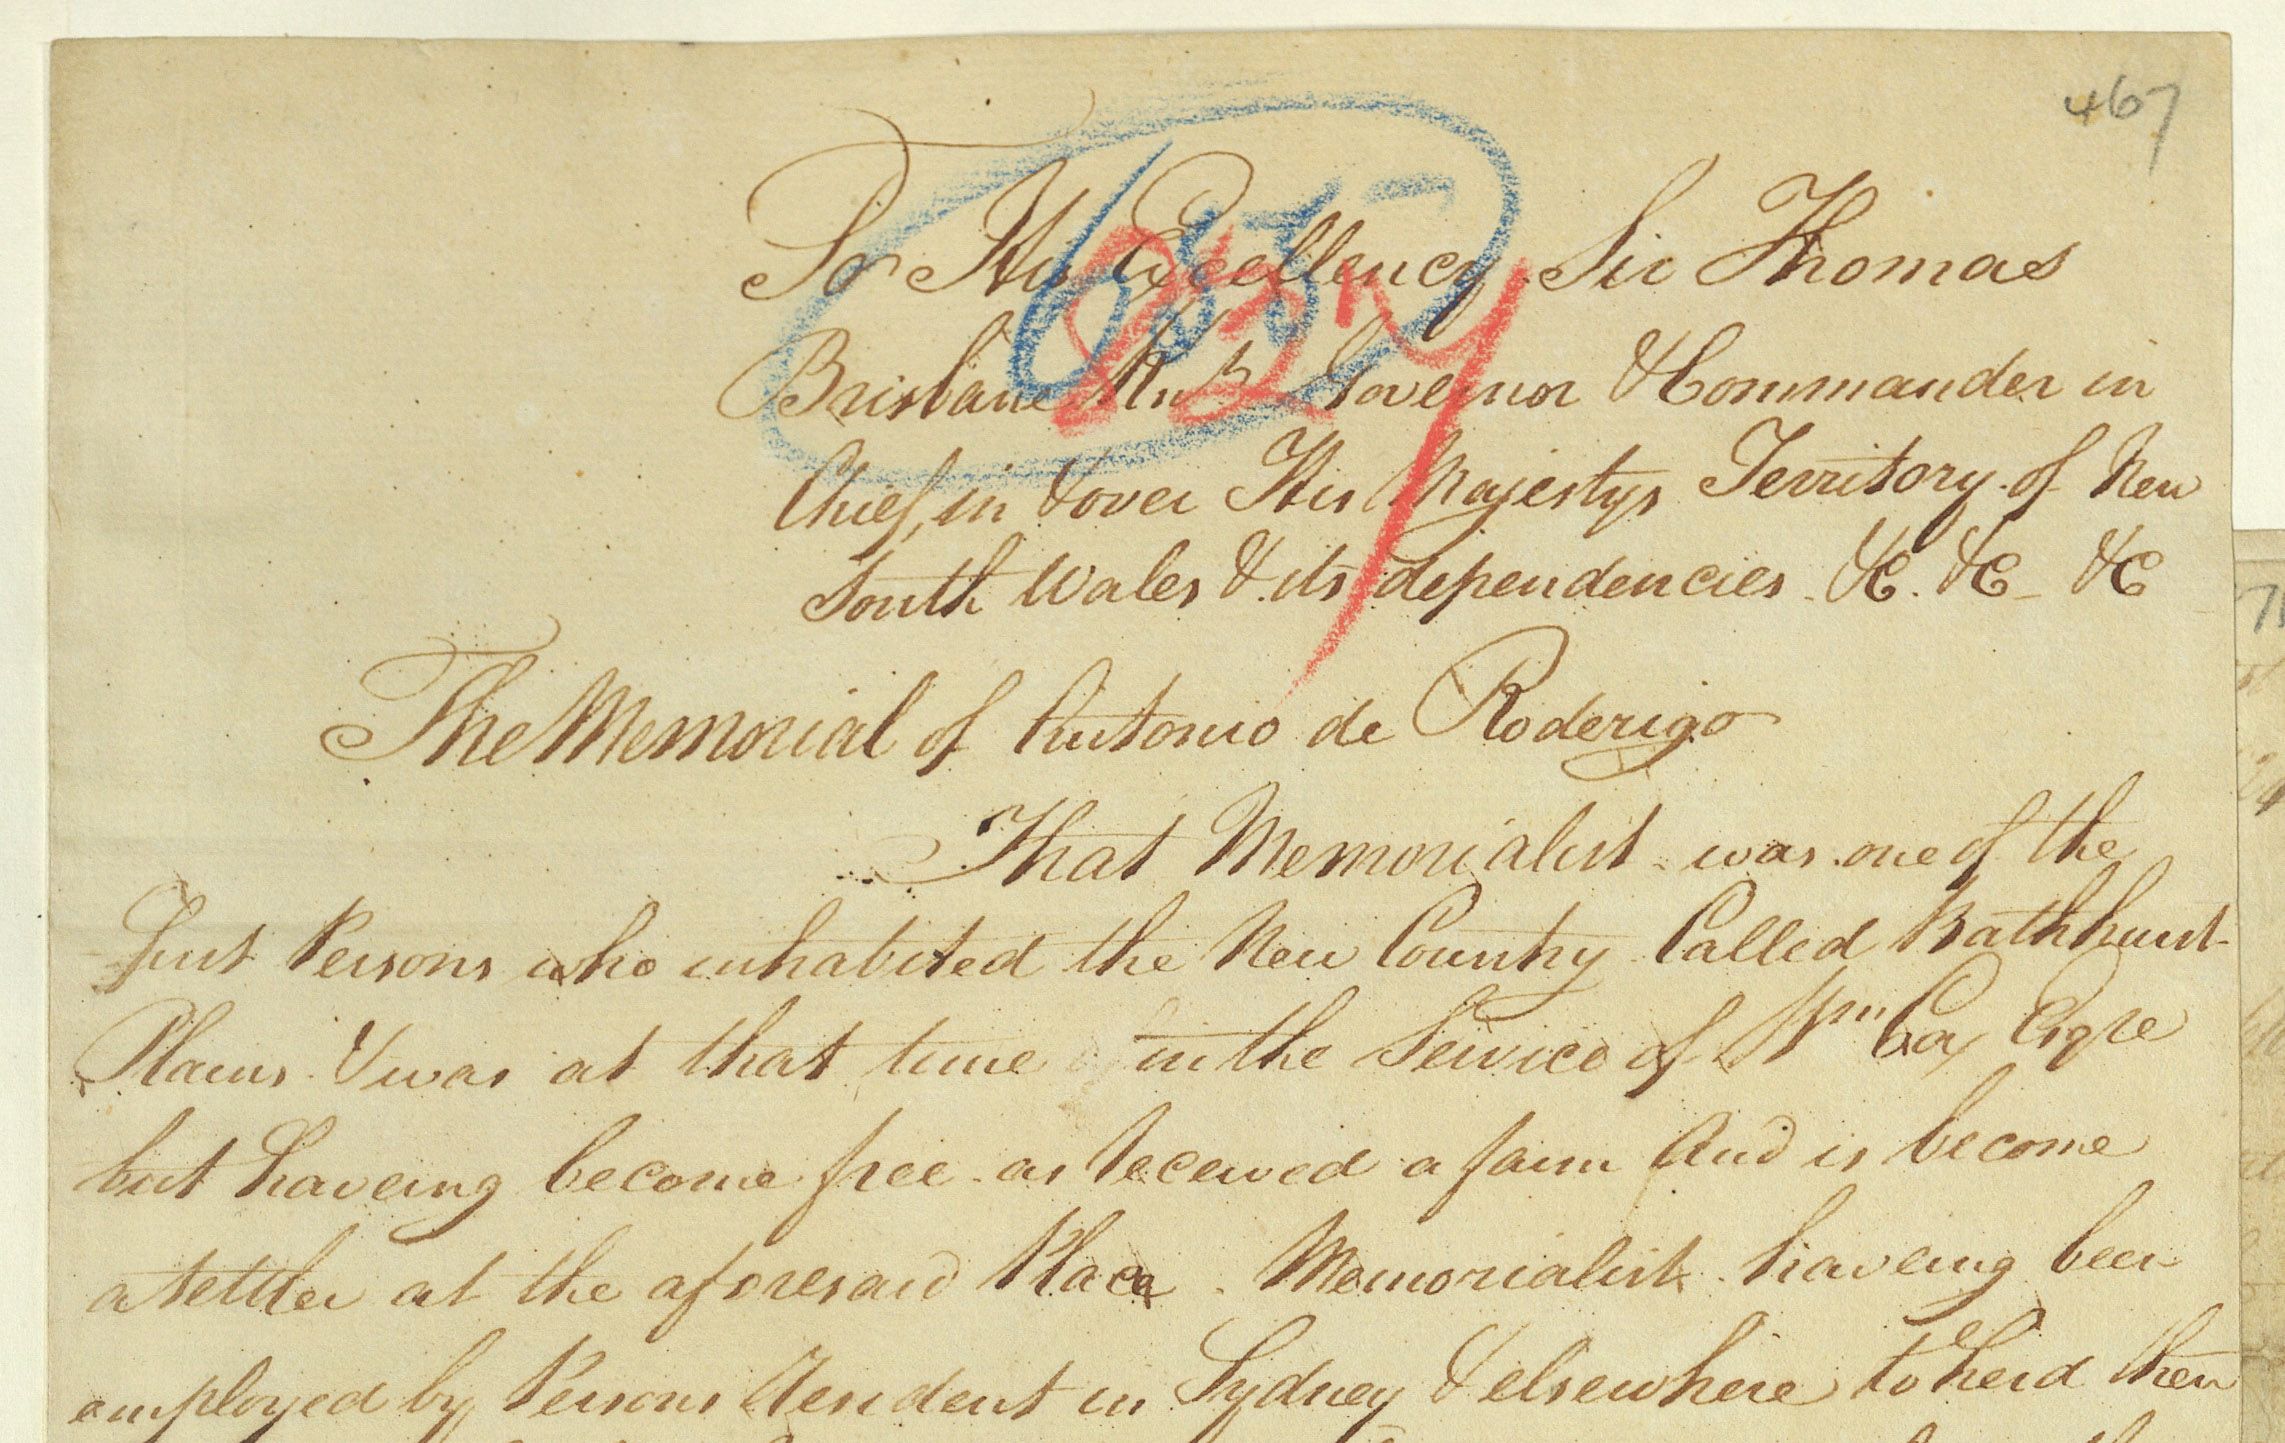 467
To His Excellency Sir Thomas
Brisbane Knt Governor & Commander in
Chief, in & over His Majestys Territory of New
South Wales & its dependencies &C. &C &C
The Memorial of Antonio de Roderigo
That Memorialist was one of the
first Persons who inhabited the New Country Called Bathhurst
Plains & was at that time in the Service of Wm Cox Esqre
but haveing become free as received a farm And is become
a settler at the aforesaid Place. Memorialist haveing been
employed by Persons resident in Sydney & elsewhere to herd their